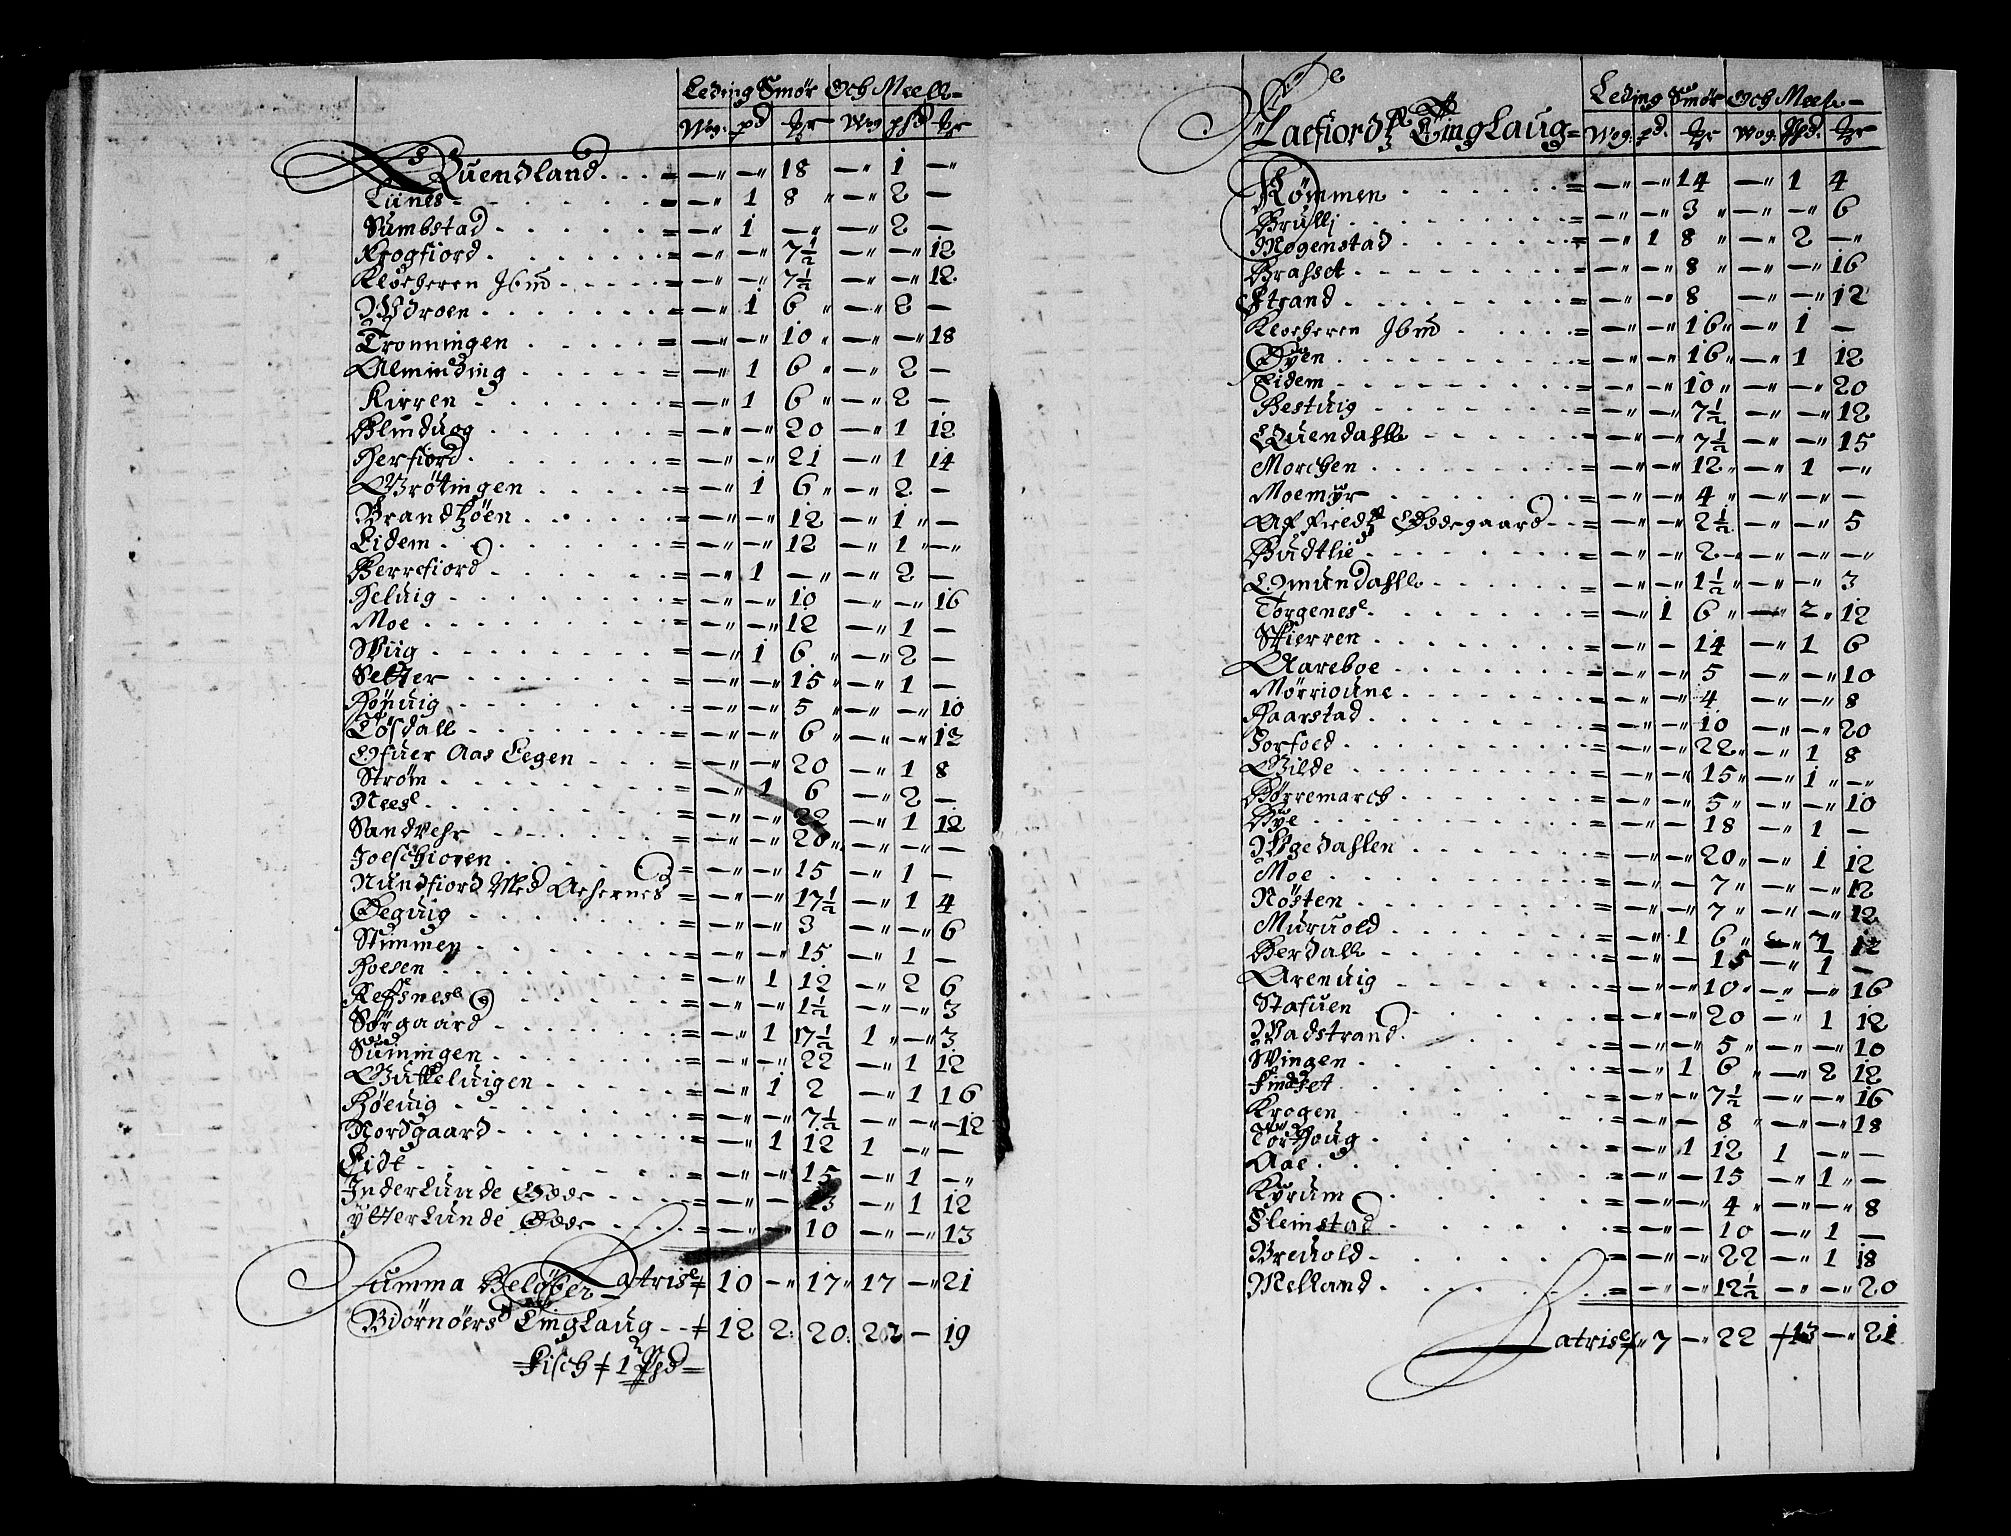 Leding Smør Och Meell-
Wog: pd ℔r Wog phd ℔r
Quendland . . . = —" —" 18 —" 1 —"
Liines - . . . . = —" 1 8 " —" 2 —
Sumbstad . . . . = —" 1 —" —" 2 —
Krogfiord . . . . = —" —" 7½ —" —" 12
Klocheren Ibm . . . . = —" —" 7½ —" —" 12
Wdroen . . . . = —" 1 6 " —" 2 —
Tronningen . . . . = —" —" 10 " —" —" 18
Alminding . . . . = —" 1 6 " —" 2 —
Kirren . . . . = —" 1 6 " —" 2 —
Blinduog . . . . = —" —" 20 —" 1 12
Herfiord . . . . = —" —" 21 —" 1 14
Grøtingen . . . . = —" 1 6 " —" 2 —
Brandtzøen . . . . = —" —" 12 —" 1 " —
Eidem . . . . = —" —" 12 —" 1 " —"
Berrefiord . . . . = —" 1 —" —" 2 —
Heluig . . . . = —" —" 10 —" —" 16
Moe . . . . = —" —" 12 —" 1 —
Wiig . . . . = —" 1 6 " —" 2 —
Setter . . . . = —" —" 15 " —" 1 —
Hønuig . . . . = —" —" 5 " —" —" 10
Tøsdall . . . . = —" —" 6 " —" —" 12
Ofuer Aas Eegen . . . = —" —" 20 —" 1 8
Strøm . . . . = —" 1 6 —" 2 —
Nees . . . . = —" —" 22 —" 1 12
Sandvehr . . . . = —" —" 20 " —" —" —
Joelschioren . . . . = —" —" 15 —" 1 —
Nundfiord Med Achernes = —" —" 17½ —" 1 4
Øeguig . . . . = —" —" 3 —" —" 6
Stimmen . . . . = —" —" 15 —" 1 —
Hoesen . . . . = —" 1 12 —" 2 6
Refsnes . . . . = —" —" 1½ —" —" 3
Sørgaard . . . . = —" 1 17½ 1 " —" 3
Suningen . . . . = —" —" 22 —" 1 12
Gulteluigen . . . . = —" 1 2 —" 1 16
Høeuig . . . . = —" —" 7½ —" —" 12
Nordgaard . . . . = —" 1 12 1 —" —
Eide . . . . = —" —" 15 —" 1 —"
Inderlunde Øde . . . . = —" — 13 —" 1 12
ytterlunde Øde . . . . = —" —" 10 —" —" 13
Summa Beløber Latris 10 —" 17 " 17 —" 21
Biørnøers Tinglaug - - 12 2: 20: 22 — 19
Fisch 1 Phd
Leding Smør Och Meel-
Aaefiordtz Tinglaug= Wog: pd. ℔r Wog: Phd. ℔r
Rømmen . . . . = —" —" 14 —" 1 4
Brullj . . . . = —" —" 3 " —" —" 6
Mogenstad . . . . = —" 1 8 " —" 2 —"
Brasset . . . . = —" —" 8 " —" —" 16
Strand . . . . = —" —" 8 —" —" 12
Klocheren Ibm . . . . = —" —" 16 " —" 1 —
Øyen . . . . = —" —" 16 " —" 1 12
Eidem . . . . = —" —" 10 " —" —" 20
Hestuig . . . . = —" —" 7½ —" —" 12
Quendahll . . . . = —" —" 7½ —" —" 15
Morchen . . . . = —" —" 12 " —" 1 —"
Moemyr . . . . = —" —" 4 " —" —" —
Af Fieldtz Ødegaard - . = —" —" 2½ —" —" 5
Budtlie . . . . = —" —" 2 —" —" —" —"
Omundahll . . . . = —" —" 1½ " —" —" 3
Torgenes . . . . = —" 1 6 " —" 2 " 12
Skierren . . . . = —" —" 14 —" 1 6
Aareboe . . . . = —" —" 5 —" —" 10
Mørrioune . . . . = —" —" 4 —" —" 8
Haarstad . . . . = —" —" 10 —" —" 20
Jorfoed . . . . = —" —" 22 " —" 1 8
Gilde . . . . = —" —" 15 " —" 1 " —"
Børremarch . . . . = —" —" 5 " —" —" 10
Bye . . . . = —" —" 18 —" 1 —
Wgedahlen . . . . = —" —" 20 " —" 1 12
Moe . . . . = —" —" 7 " —" —" 12
Nøsten . . . . = —" —" 7 " —" —" 12
Muruold . . . . = —" 1 6 " —" 2 12
Berdall . . . . = —" — 15 —" 1 —
Arenuig . . . . = —" —" 10 " —" —" 16
Stafuen . . . . = —" —" 20 —" 1 12
Wadstrand . . . . = —" —" 5 " —" —" 10
Wingen . . . . = —" 1 6 " —" 2 12
Findset . . . . = —" —" 7½ —" —" 16
Krogen . . . . = —" — 8 " —" —" 18
Torhoug . . . . = —" 1 12 1 —" —
Aae . . . . = —" — 15 —" 1 " —
Kyrum . . . . = —" — 4 " —" —" 8
Sleinstad . . . . = —" — 10 —" 1 —
Breuold . . . . = —" —" 22 —" 1 18
Melland . . . . = —" —" 12½ —" —" 20
Latris " 7 —" 22 13 —" 21